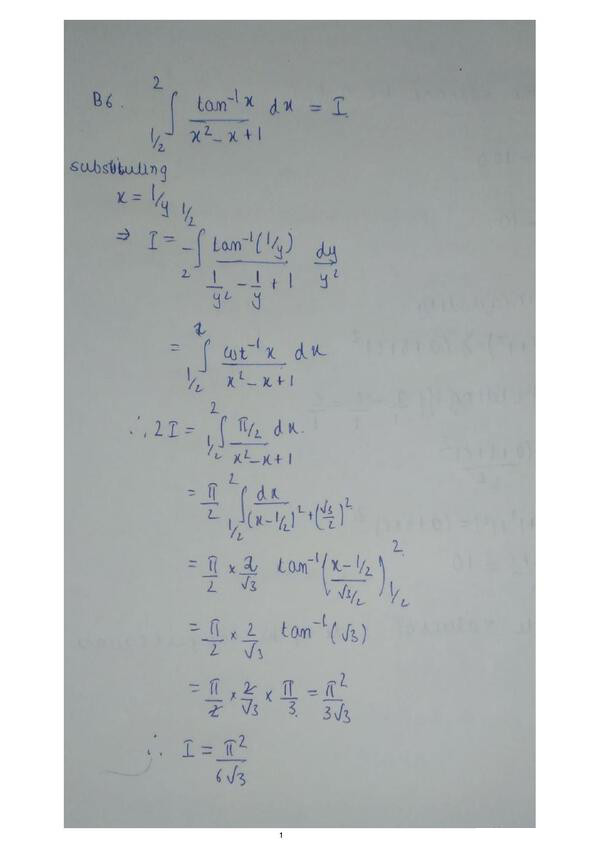 B6. ∫_{1/2}^{2} tan⁻¹x / (x² − x + 1) dx = I.
substituting
x = 1/y
⇒ I = −∫_{2}^{1/2} tan⁻¹(1/y) / (1/y² − 1/y + 1) dy/y²
= ∫_{1/2}^{2} cot⁻¹x / (x² − x + 1) dx
∴ 2I = ∫_{1/2}^{2} (π/2) / (x² − x + 1) dx.
= π/2 ∫_{1/2}^{2} dx / ((x − 1/2)² + (√3/2)²)
= π/2 × 2/√3 tan⁻¹((x − 1/2) / (√3/2))_{1/2}^{2}
= π/2 × 2/√3 tan⁻¹(√3)
= π/2 × 2/√3 × π/3 = π²/3√3
∴ I = π²/6√3
1